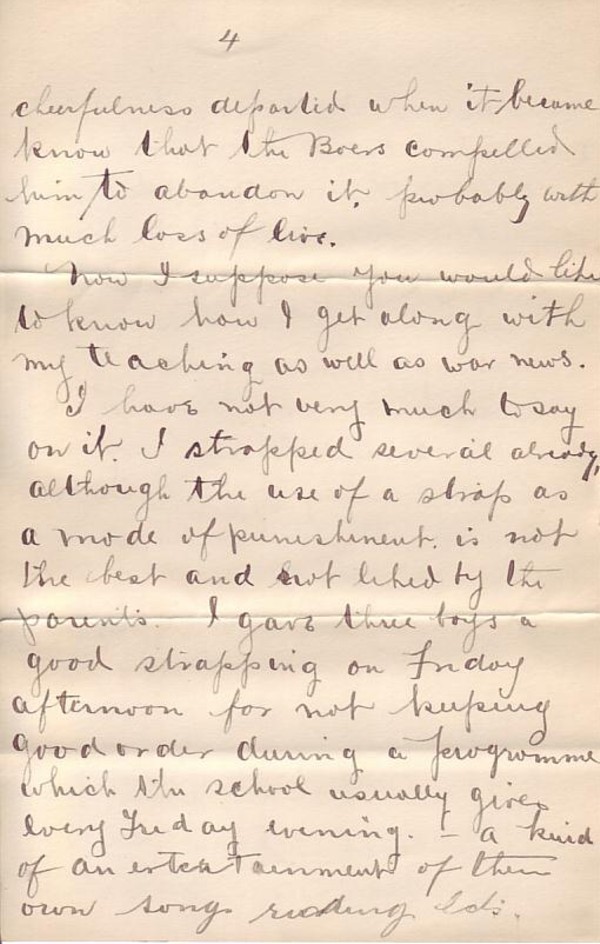 4
cheerfulness departed when it became
know that the Boers compelled
him to abandon it, probably with
much loss of live.
Now I suppose you would like
to know how I get along with
my teaching as well as war news.
I have not very much to say
on it. I strapped several already,
although the use of a strap as
a mode of punishment, is not
the best and not liked by the
parents. I gave three boys a
good strapping on Friday
afternoon for not keeping
good order during a programme
which the school usually gives
every Friday evening. – a kind
of an entertainment of their
own songs reading